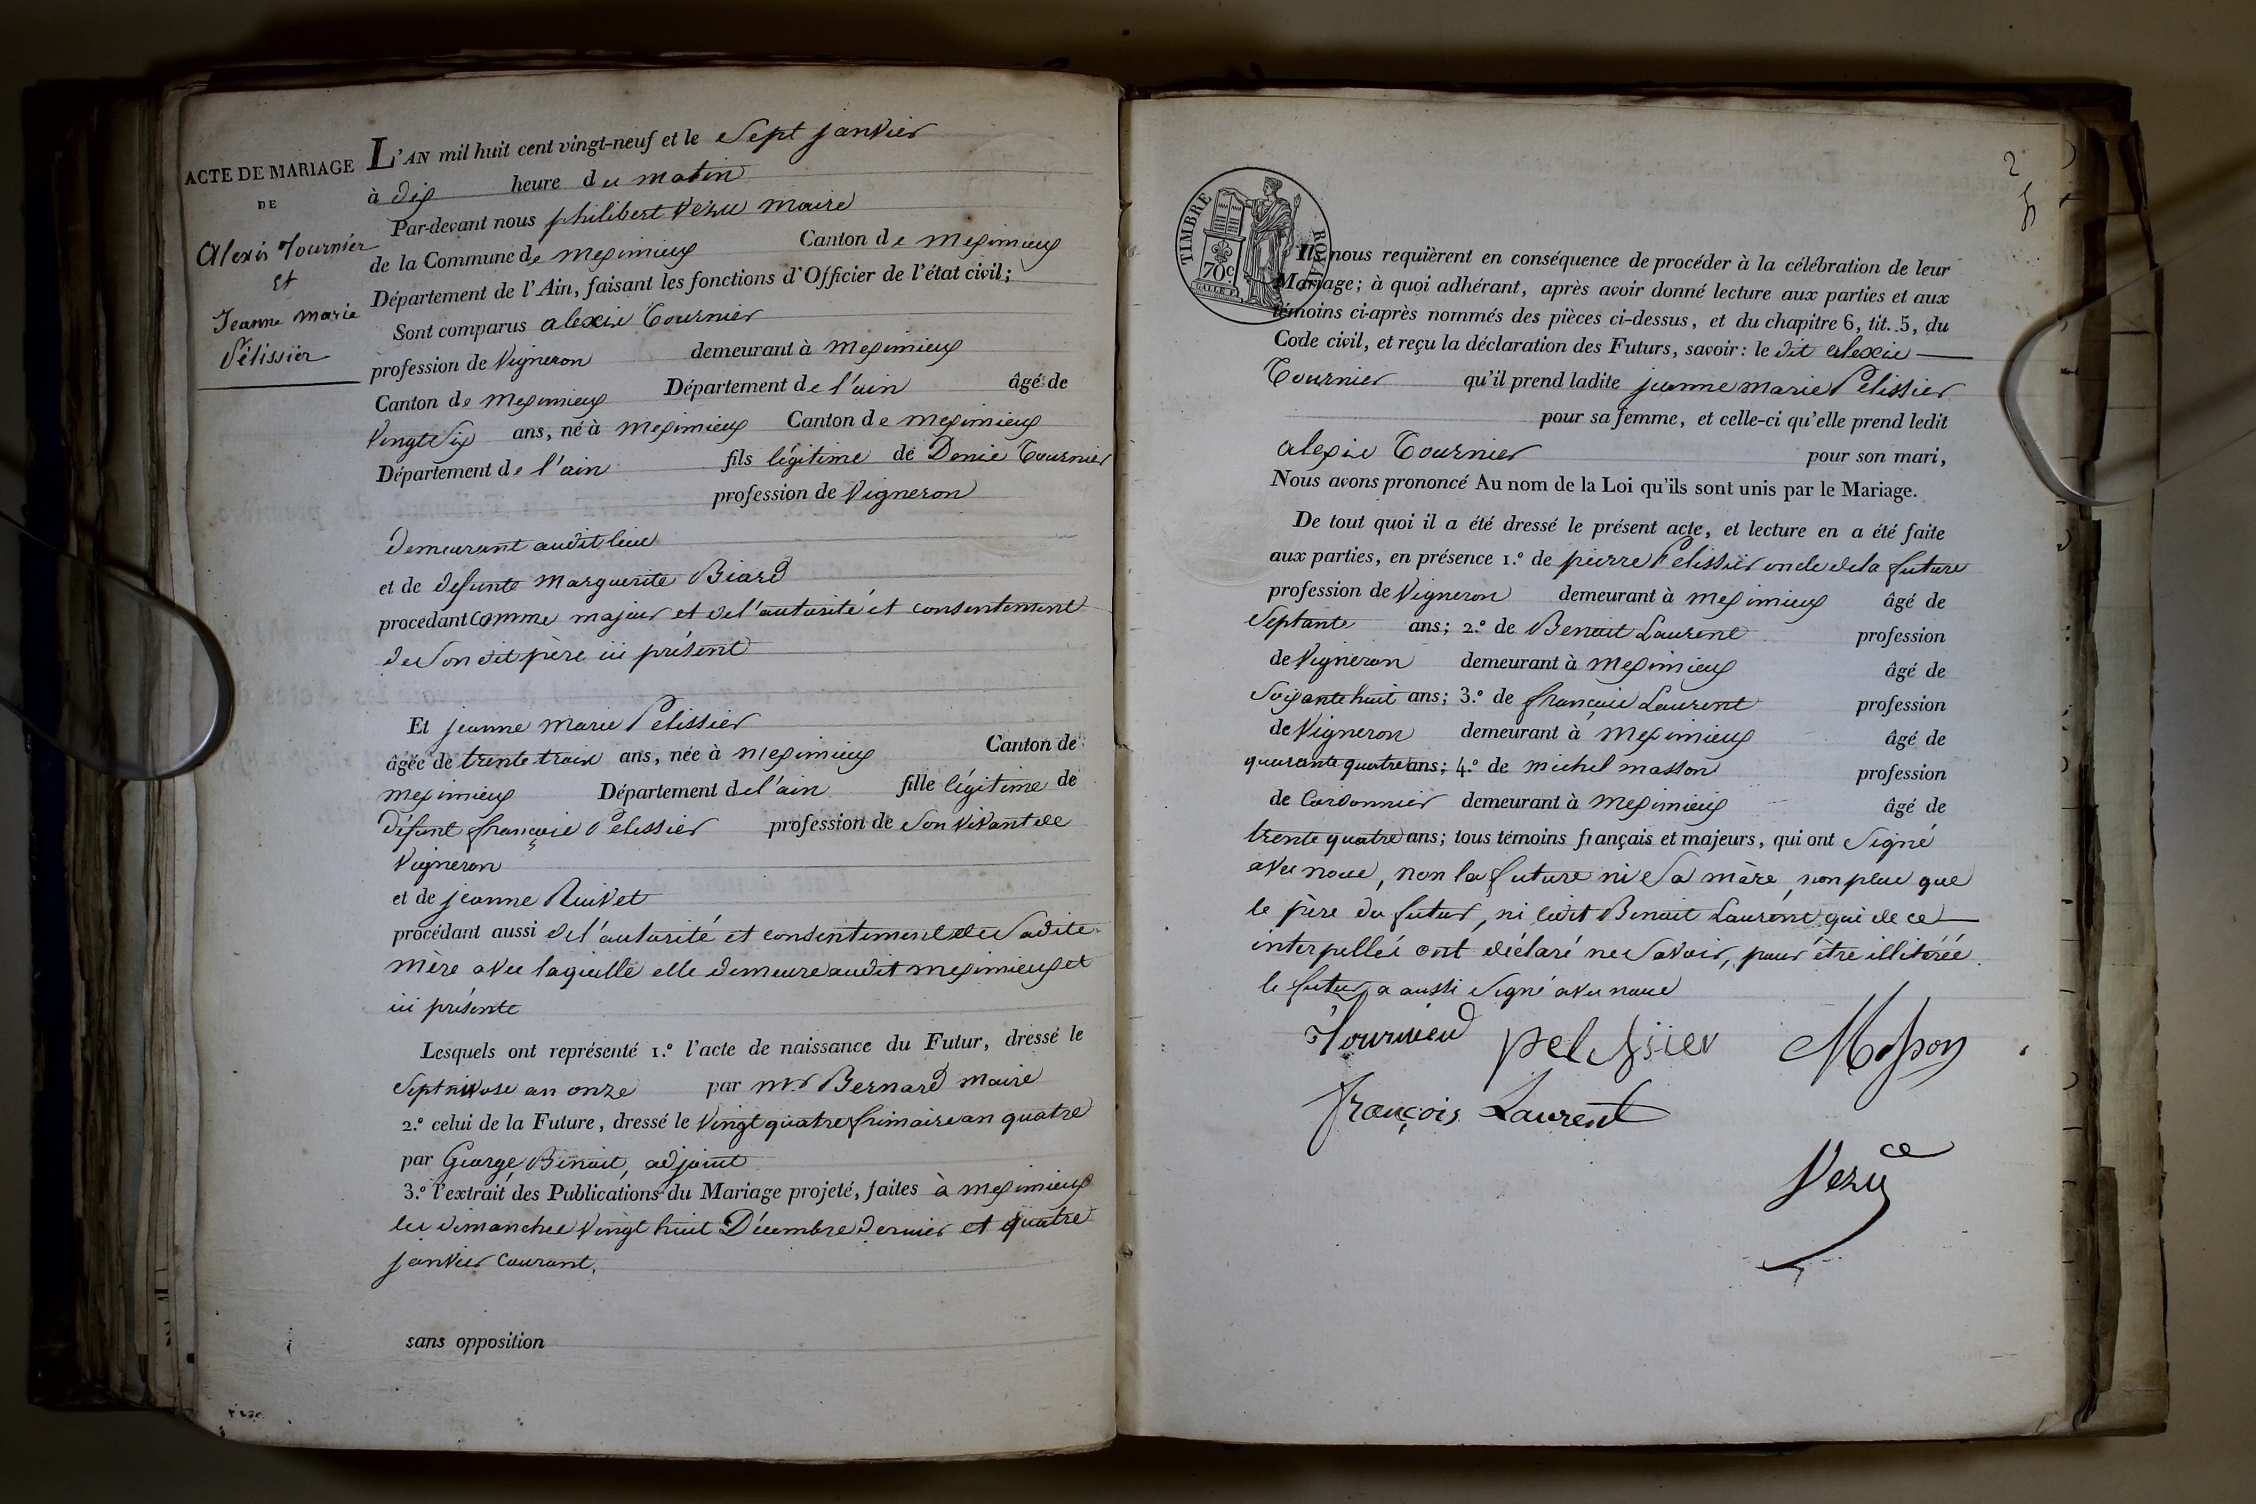 ACTE DE MARIAGE
DE
Alexis Tournier
et
Jeanne Marie
Pélissier
L'AN mil huit cent vingt-neuf et le Sept janvier
à dix heure du matin
Par-devant nous philibert Vezu maire
de la Commune de meximieux Canton de meximieux
Département de l'Ain, faisant les fonctions d'Officier de l'état civil;
Sont comparus alexis Tournier
profession de Vigneron demeurant à meximieux
Canton de meximieux Département de l'ain âgé de
Vingt Six ans, né à meximieux Canton de meximieux
Département de l'ain fils légitime de Denis Tournier
profession de Vigneron
demeurant audit lieu
et de defunte Marguerite Biard
procédant comme majeur et de l'autorité et consentement
de Son dit père ici présent
Et jeanne marie Pelissier
âgée de trente trois ans, née à meximieux Canton de
meximieux Département de l'ain fille légitime de
défunt françois Pelissier profession de Son Vivant de
Vigneron
et de jeanne Ruivet
procédant aussi de l'autorité et consentement de Sadite
mère avec laquelle elle demeure audit meximieux et
ici présente
Lesquels ont représenté 1.º l'acte de naissance du Futur, dressé le
Sept nivose an onze par mr Bernard maire
2.º celui de la Future, dressé le Vingt quatre frimaire an quatre
par George Benoit, adjoint
3.º l'extrait des Publications du Mariage projeté, faites à meximieux
les dimanches Vingt huit Décembre dernier et quatre
janvier courant.
sans opposition
2
TIMBRE ROYAL
70c
Ils nous requièrent en conséquence de procéder à la célébration de leur
Mariage; à quoi adhérant, après avoir donné lecture aux parties et aux
témoins ci-après nommés des pièces ci-dessus, et du chapitre 6, tit. 5, du
Code civil, et reçu la déclaration des Futurs, savoir: le dit alexis
Tournier qu'il prend ladite jeanne marie Pelissier
pour sa femme, et celle-ci qu'elle prend ledit
alexis Tournier pour son mari,
Nous avons prononcé Au nom de la Loi qu'ils sont unis par le Mariage.
De tout quoi il a été dressé le présent acte, et lecture en a été faite
aux parties, en présence 1.º de pierre Pelissier oncle de la future
profession de Vigneron demeurant à meximieux âgé de
Septante ans; 2.º de Benoit Laurent profession
de Vigneron demeurant à meximieux âgé de
Soixante huit ans; 3.º de françois Laurent profession
de Vigneron demeurant à meximieux âgé de
quarante quatre ans; 4.º de michel masson profession
de Cordonnier demeurant à meximieux âgé de
trente quatre ans; tous témoins français et majeurs, qui ont Signé
avec nous, non la future ni Sa mère, non plus que
le père du futur, ni ledit Benoit Laurent qui de ce
interpellés ont déclaré ne Savoir, pour être illitérés
le futur a aussi Signé avec nous
Tournier pelissier Masson
François Laurent
Vezu